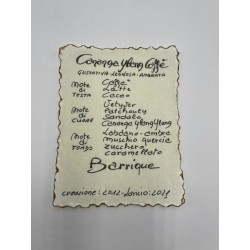 Cananga Ylang Coffè
GUSTATIVA-LEGNOSA-AMBRATA
Note di TESTA
Caffè
Latte
Cacao
Note di CUORE
Vetyver
Patchouly
Sandalo
Cananga Ylang Ylang
Note di FONDO
Labdano-ambra
muschio quercia
zucchero
caramellato
Barrique
creazione: 2012-Lancio: 2021